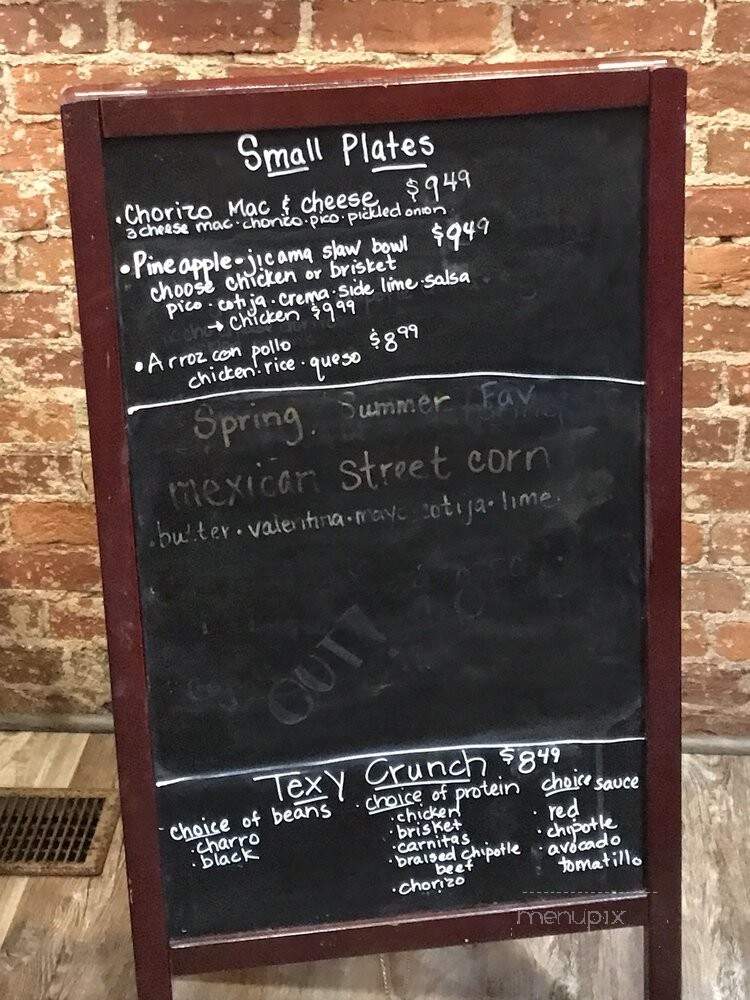 Small Plates
• Chorizo Mac & cheese $9.49
3 cheese mac · chorizo · pico · pickled onion
• Pineapple · jicama slaw bowl $9.49
choose chicken or brisket
pico · cotija · crema · side lime · salsa
→ chicken $9.99
• Arroz con pollo $8.99
chicken · rice · queso
Spring. Summer Fav
mexican street corn
· butter · valentina · mayo cotija · lime
OUT!
Texy Crunch $8.49
choice of beans
· charro
· black
choice of protein
· chicken
· brisket
· carnitas
· braised chipotle
beef
· chorizo
choice sauce
· red
· chipotle
· avocado
tomatillo
menupix